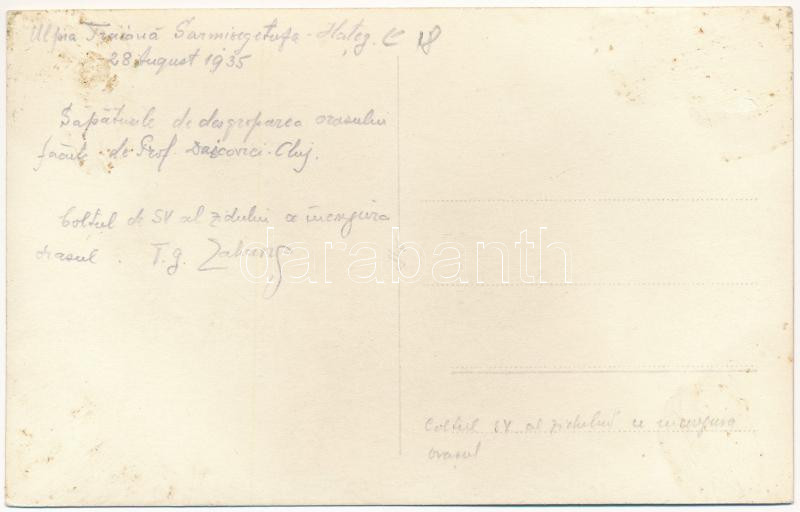 Ulpia Traiană Sarmisegetuza - Hațeg. C 18
28 August 1935
Săpăturile de desgroparea orasului
făcute de Prof. Daicovici - Cluj.
Colțul de SV al zidului ce incngiura
orasul. T. g.
darabanth
Coltul SV al zidului ce incngiura
orașul